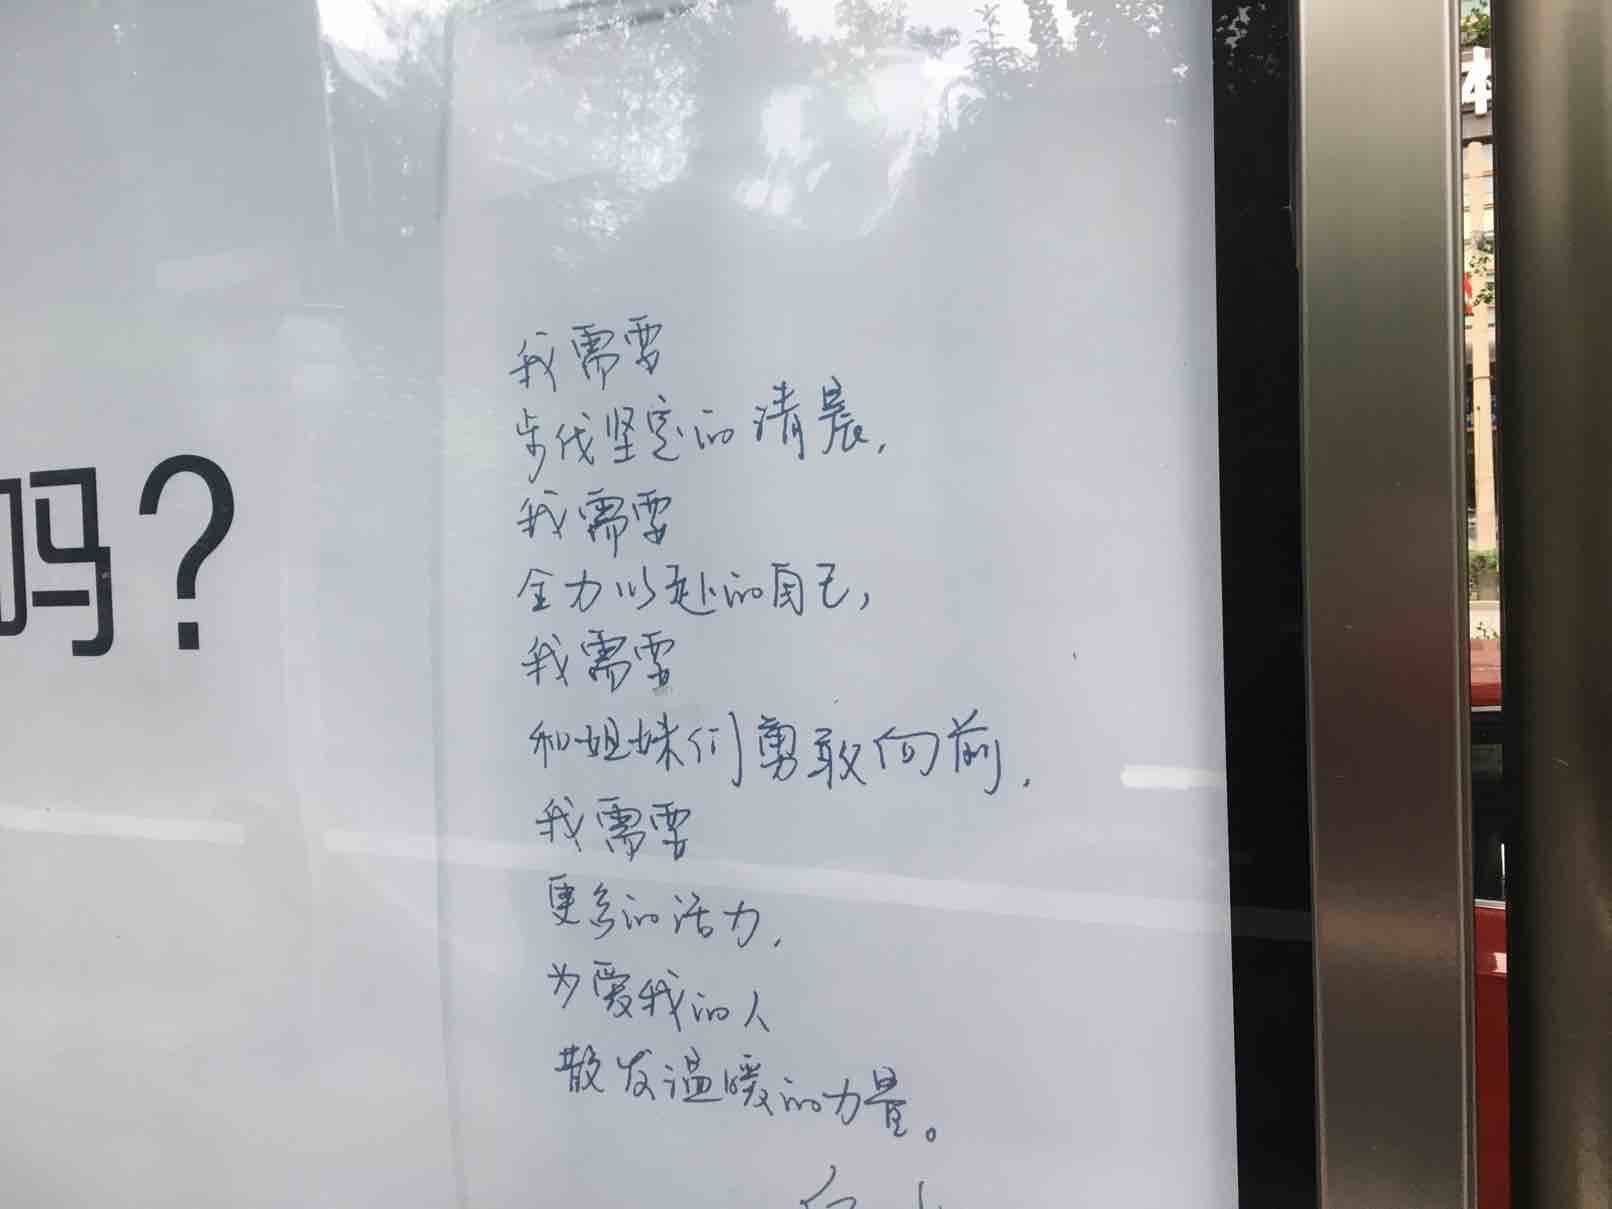 吗?
我需要
步伐坚定的清晨,
我需要
全力以赴的自己,
我需要
和姐妹们勇敢向前.
我需要
更多的活力,
为爱我的人
散发温暖的力量。
4